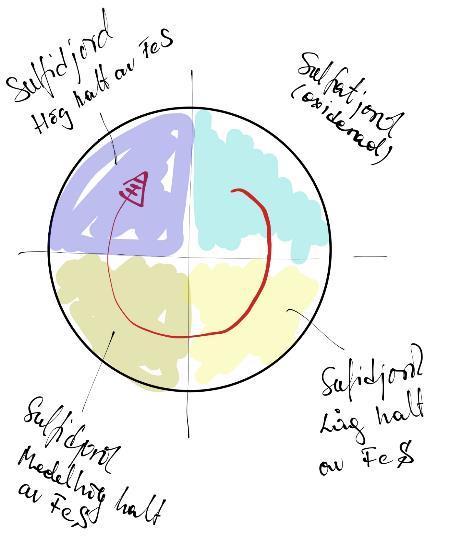 Sulfidjord
Hög halt av FeS
Sulfatjord
(oxiderad)
Sulfidjord
Låg halt
av FeS
Sulfidjord
Medelhög halt
av FeS